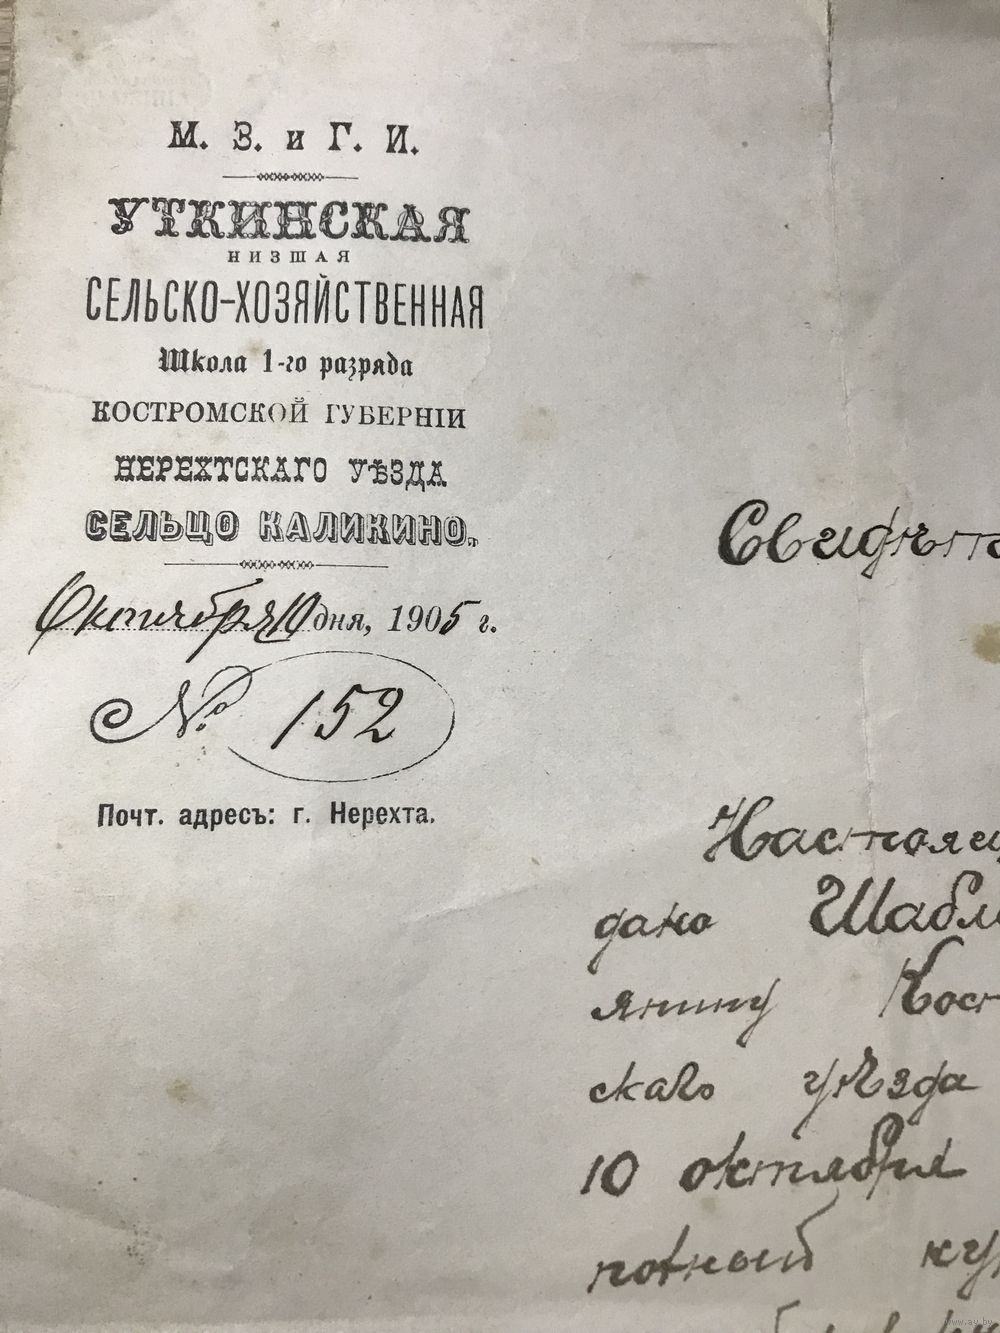 М. З. и Г. И.
УТКИНСКАЯ
НИЗШАЯ
СЕЛЬСКО-ХОЗЯЙСТВЕННАЯ
Школа 1-го разряда
КОСТРОМСКОЙ ГУБЕРНІИ
НЕРЕХТСКАГО УѢЗДА
СЕЛЬЦО КАЛИКИНО.
Октября 10 дня, 1905 г.
№ 152
Почт. адресъ: г. Нерехта.
Свидѣт
Настоящ
дано Шабл
янину Кост
скаго уѣзда
10 октября
полный ку
www.ay.by